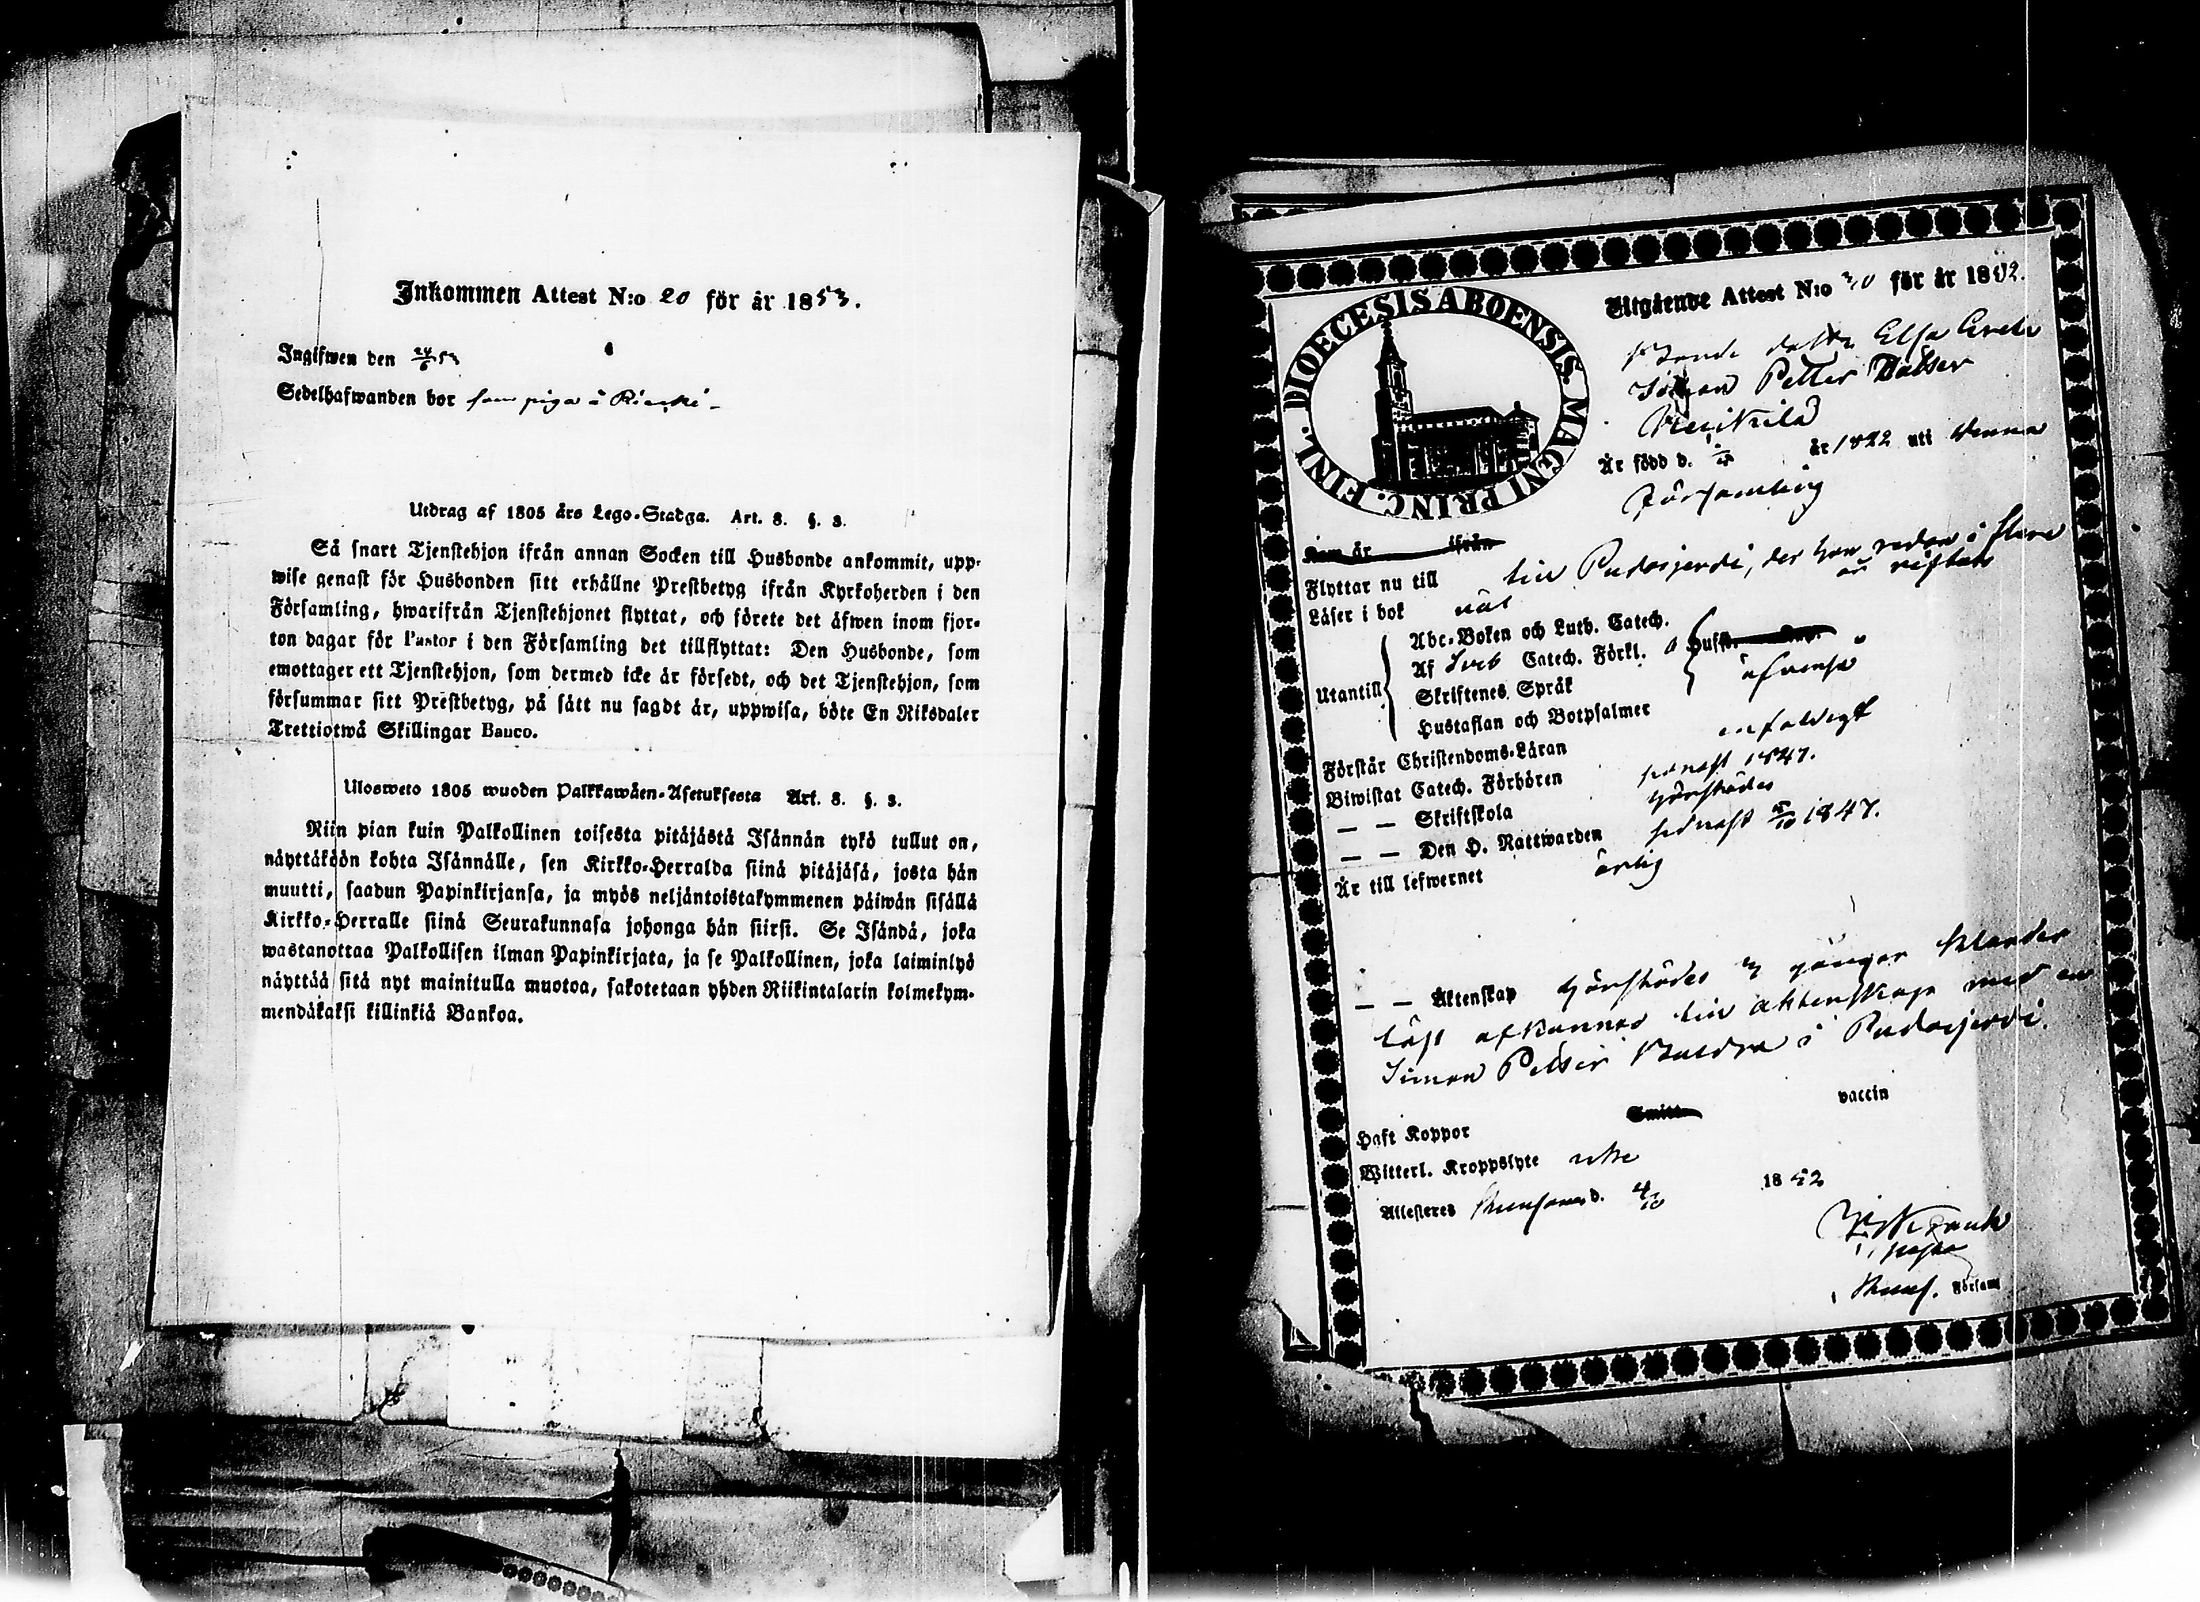 Inkommen Attest N:o 20 för år 1853.
Ingifwen den 24/6 53
Sedelhafwanden bor som piga å
Utdrag af 1805 års Lego-Stadga. Art. 8. §. 3.
Så snart Tjenstehjon ifrån annan Socken till Husbonde ankommit, upp-
wise genast för Husbonden sitt erhållne Prestbetyg ifrån Kyrkoherden i den
Församling, hwarifrån Tjenstehjonet flyttat, och förete det äfwen inom fjor-
ton dagar för Pastor i den Församling det tillflyttat: Den Husbonde, som
emottager ett Tjenstehjon, som dermed icke är försedt, och det Tjenstehjon, som
försummar sitt Prestbetyg, på sätt nu sagdt är, uppwisa, böte En Riksdaler
Trettiotwå Skillingar Banco.
Ulosweto 1805 wuoden Palkkawäen-Asetuksesta Art. 8. §. 3.
Niin pian kuin Palkollinen toisesta pitäjästä Isännän tykö tullut on,
näyttäköön kohta Isännälle, sen Kirkko-Herralda siinä pitäjäsä, josta hän
muutti, saadun Papinkirjansa, ja myös neljäntoistakymmenen päiwän sisällä
Kirkko-Herralle siinä Seurakunnasa johonga hän siirsi. Se Isändä, joka
wastanottaa Palkollisen ilman Papinkirjata, ja se Palkollinen, joka laiminlyö
näyttää sitä nyt mainitulla muotoa, sakotetaan yhden Riikintalarin kolmekym-
mendäkaksi killinkiä Bankoa.
DIOECESIS ABOENSIS. MAGNI PRINC. FINL.
Utgående Attest N:o 20 för år 1852.
Elsa Greta
Simon Petter Dotter
Är född d. år 1822 uti denna
Församling
Som är ifrån
Flyttar nu till till Pudasjerdi, der hon redan i flere
år vistats
Läser i bok väl
Utantill
Abc-Boken och Luth. Catech.
Af Sveb Catech. Förkl.
Skriftenes Språk
Hustaflan och Botpsalmer
äfvenså
Förstår Christendoms-Läran enfaldigt
Biwistat Catech. Förhören senast 1847.
— — Skriftskola
— — Den H. Nattwarden senast 1847.
Är till lefwernet ärlig
— — Äktenskap 3 gånger
lyst till äktenskap med en
Simon Petter i Pudasjerdi.
Haft Koppor Smitt vaccin
Witterl. Kroppslyte icke
Attesteras d. 4/10 1852
Församl